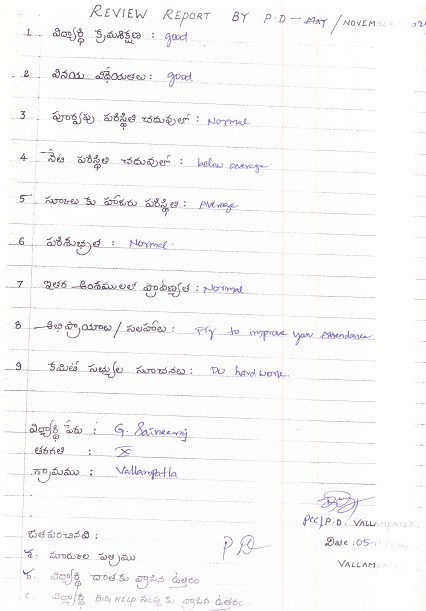 REVIEW REPORT BY P.D - MAY / NOVEMBER
1 విద్యార్థి క్రమశిక్షణ : good
2 వినయ విధేయతలు : good
3 పూర్వపు పరిస్థితి చదువులో : Normal
4 నేటి పరిస్థితి చదువులో : below average
5 స్కూలు కు హాజరు పరిస్థితి : Average
6 పరిశుభ్రత : Normal.
7 ఇతర అంశములలో ప్రావీణ్యత : Normal
8 అభిప్రాయాలు / సలహాలు : Try to improve your Attendance
9 కమిటీ సభ్యుల సూచనలు : Do hard work.
విద్యార్థి పేరు : G. Saineeraj
తరగతి : X
గ్రామము : Vallampatla
PCC/P.D. VALLAMPATLA
జతపరచినవి : P D Date : 05-
VALLAM
a. మార్కుల పత్రము
b. విద్యార్థి దాతకు వ్రాసిన ఉత్తరం
c. విద్యార్థి BIG HELP సంస్థకు వ్రాసిన ఉత్తరం.